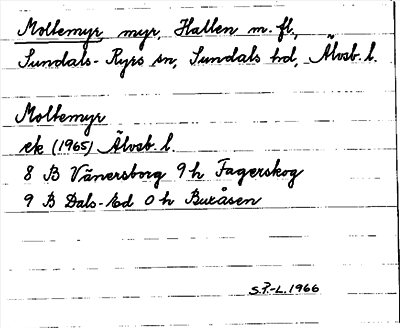 Moltemyr, myr, Hallen m. fl.,
Sundals-Ryrs sn, Sundals hd, Älvsb. l.
Moltemyr
ek (1965) Älvsb. l.
8 B Vänersborg 9 h Fagerskog
9 B Dals-Ed 0 h Buråsen
S.P.-L. 1966